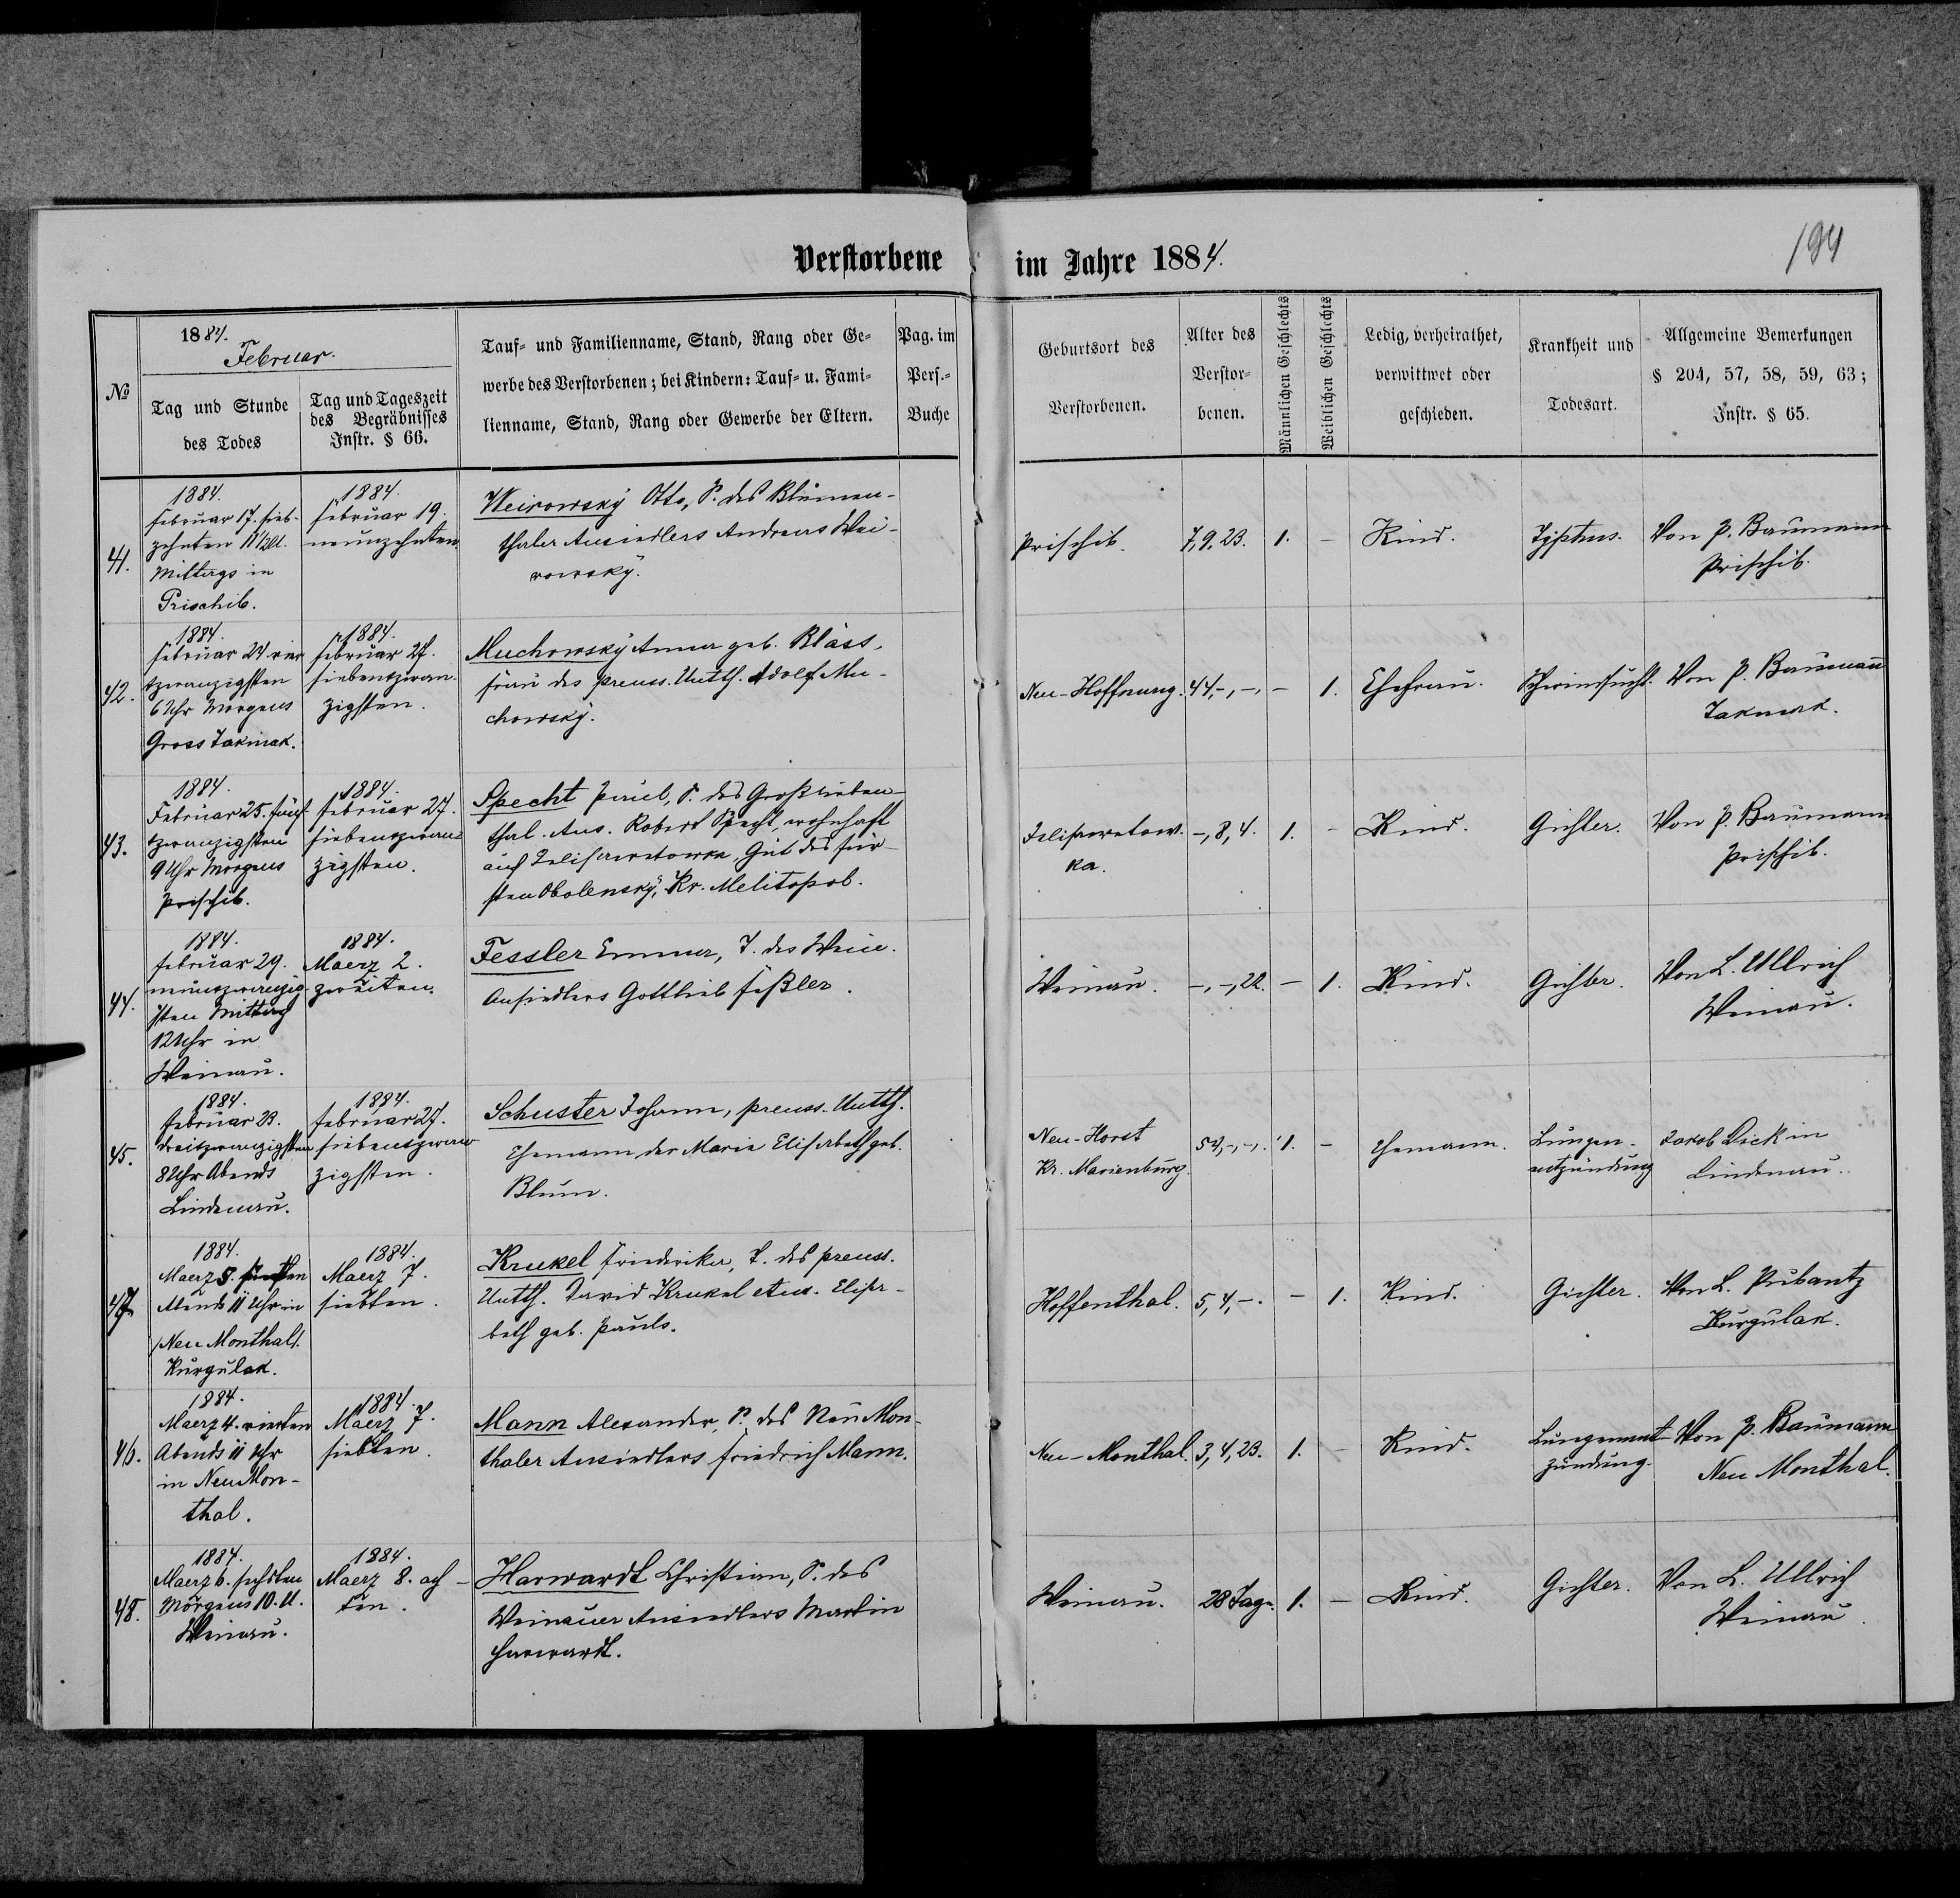 Verstorbene im Jahre 1884.
194
№
1884.
Februar.
Tag und Stunde
des Todes
Tag und Tageszeit
des Begräbnisses
Instr. § 66.
Tauf- und Familienname, Stand, Rang oder Ge-
werbe des Verstorbenen; bei Kindern: Tauf- u. Fami-
lienname, Stand, Rang oder Gewerbe der Eltern.
Pag. im
Pers.-
Buche
Geburtsort des
Verstorbenen.
Alter des
Verstor-
benen.
Männlichen Geschlechts
Weiblichen Geschlechts
Ledig, verheirathet,
verwittwet oder
geschieden.
Krankheit und
Todesart.
Allgemeine Bemerkungen
§ 204, 57, 58, 59, 63;
Instr. § 65.
41.
1884.
Februar 17. sieb-
zehnten 11 1/2 U.
Mittags in
Prischib.
1884.
Februar 19.
neunzehnten
Weirowsky Otto, S. des Blumen-
thaler Ansiedlers Andreas Wei-
rowsky.
Prischib.
7,9,23.
1.
–
Kind.
Typhus.
Von P. Baumann
Prischib.
42.
1884.
Februar 24 vier
tzwanzigsten
6 Uhr Morgens
Gross Takmak.
1884.
Februar 27.
siebentzwan-
zigsten.
Muchowsky Anna geb. Bläss,
Frau des preuss. Untth. Adolf Mu-
chowsky.
Neu-Hoffnung.
44,-,-.
–
1.
Ehefrau.
Schwindsucht.
Von P. Baumann
Takmak.
43.
1884.
Februar 25. fünf
tzwanzigsten
9 Uhr Morgens
Prischib.
1884.
Februar 27.
siebentzwan-
zigsten.
Specht Paul, S. des Großlieben-
thal. Ans. Robert Specht, wohnhaft
auf Jelisawetowka, Gut des Für-
sten Obolensky, Kr. Melitopol.
Jelisawetow-
ka.
-,8,4.
1.
–
Kind.
Gichter.
Von P. Baumann
Prischib.
44.
1884.
Februar 29.
neuntzwanzig-
sten Mittag
12 Uhr in
Weinau.
1884.
Maerz 2.
zweiten.
Fessler Emma, T. des Wein.
Ansiedlers Gottlieb Feßler.
Weinau.
-,-,22.
–
1.
Kind.
Gichter.
Von L. Ullrich
Weinau.
45.
1884.
Februar 23.
dreitzwanzigsten
8 Uhr Abends
Lindenau.
1884.
Februar 27.
siebentzwan
zigsten.
Schuster Johann, preuss. Untth.
Ehemann der Maria Elisabeth geb.
Blum.
Neu-Horst
Kr. Marienburg.
54,-,-.
1.
–
Ehemann.
Lungen-
entzündung
Jakob Dick in
Lindenau.
47.
1884.
Maerz 5. fünften
Abends 11 Uhr in
/Neu Monthal/.
Kurgulak.
1884.
Maerz 7.
siebten.
Krukel Friederika, T. des preuss.
Untth. David Krukel u. Elisa-
beth geb. Pauls.
Hoffenthal.
5,4,-.
–
1.
Kind.
Gichter.
Von L. Pubantz
Kurgulak.
46.
1884.
Maerz 4. vierten
Abends 11 Uhr
in Neu Mon-
thal.
1884.
Maerz 7.
siebten.
Mann Alexander, S. des Neu Mon-
thaler Ansiedlers Friedrich Mann.
Neu-Monthal.
3,4,23.
1.
–
Kind.
Lungenent-
zündung.
Von P. Baumann
Neu Monthal.
48.
1884.
Maerz 6. sechsten
Morgens 10. U.
Weinau.
1884.
Maerz 8. ach-
ten.
Harwardt Christian, S. des
Weinauer Ansiedlers Martin
Harwardt.
Weinau.
28 Tage.
1.
–
Kind.
Gichter.
Von L. Ullrich
Weinau.